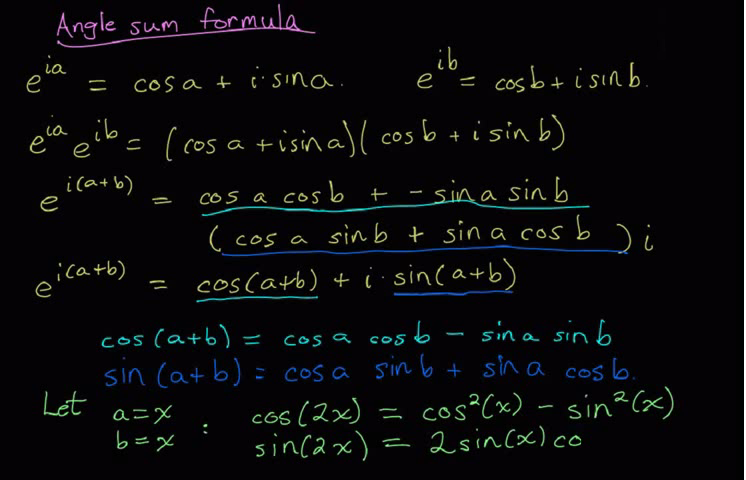 Angle sum formula
e^{ia} = cos a + i·sin a.    e^{ib} = cos b + i sin b.
e^{ia} e^{ib} = (cos a + i sin a)(cos b + i sin b)
e^{i(a+b)} = cos a cos b + - sin a sin b
(cos a sin b + sin a cos b) i
e^{i(a+b)} = cos(a+b) + i · sin(a+b)
cos (a+b) = cos a cos b - sin a sin b
sin (a+b) = cos a sin b + sin a cos b.
Let a = x : cos(2x) = cos²(x) - sin²(x)
b = x sin(2x) = 2 sin(x) co